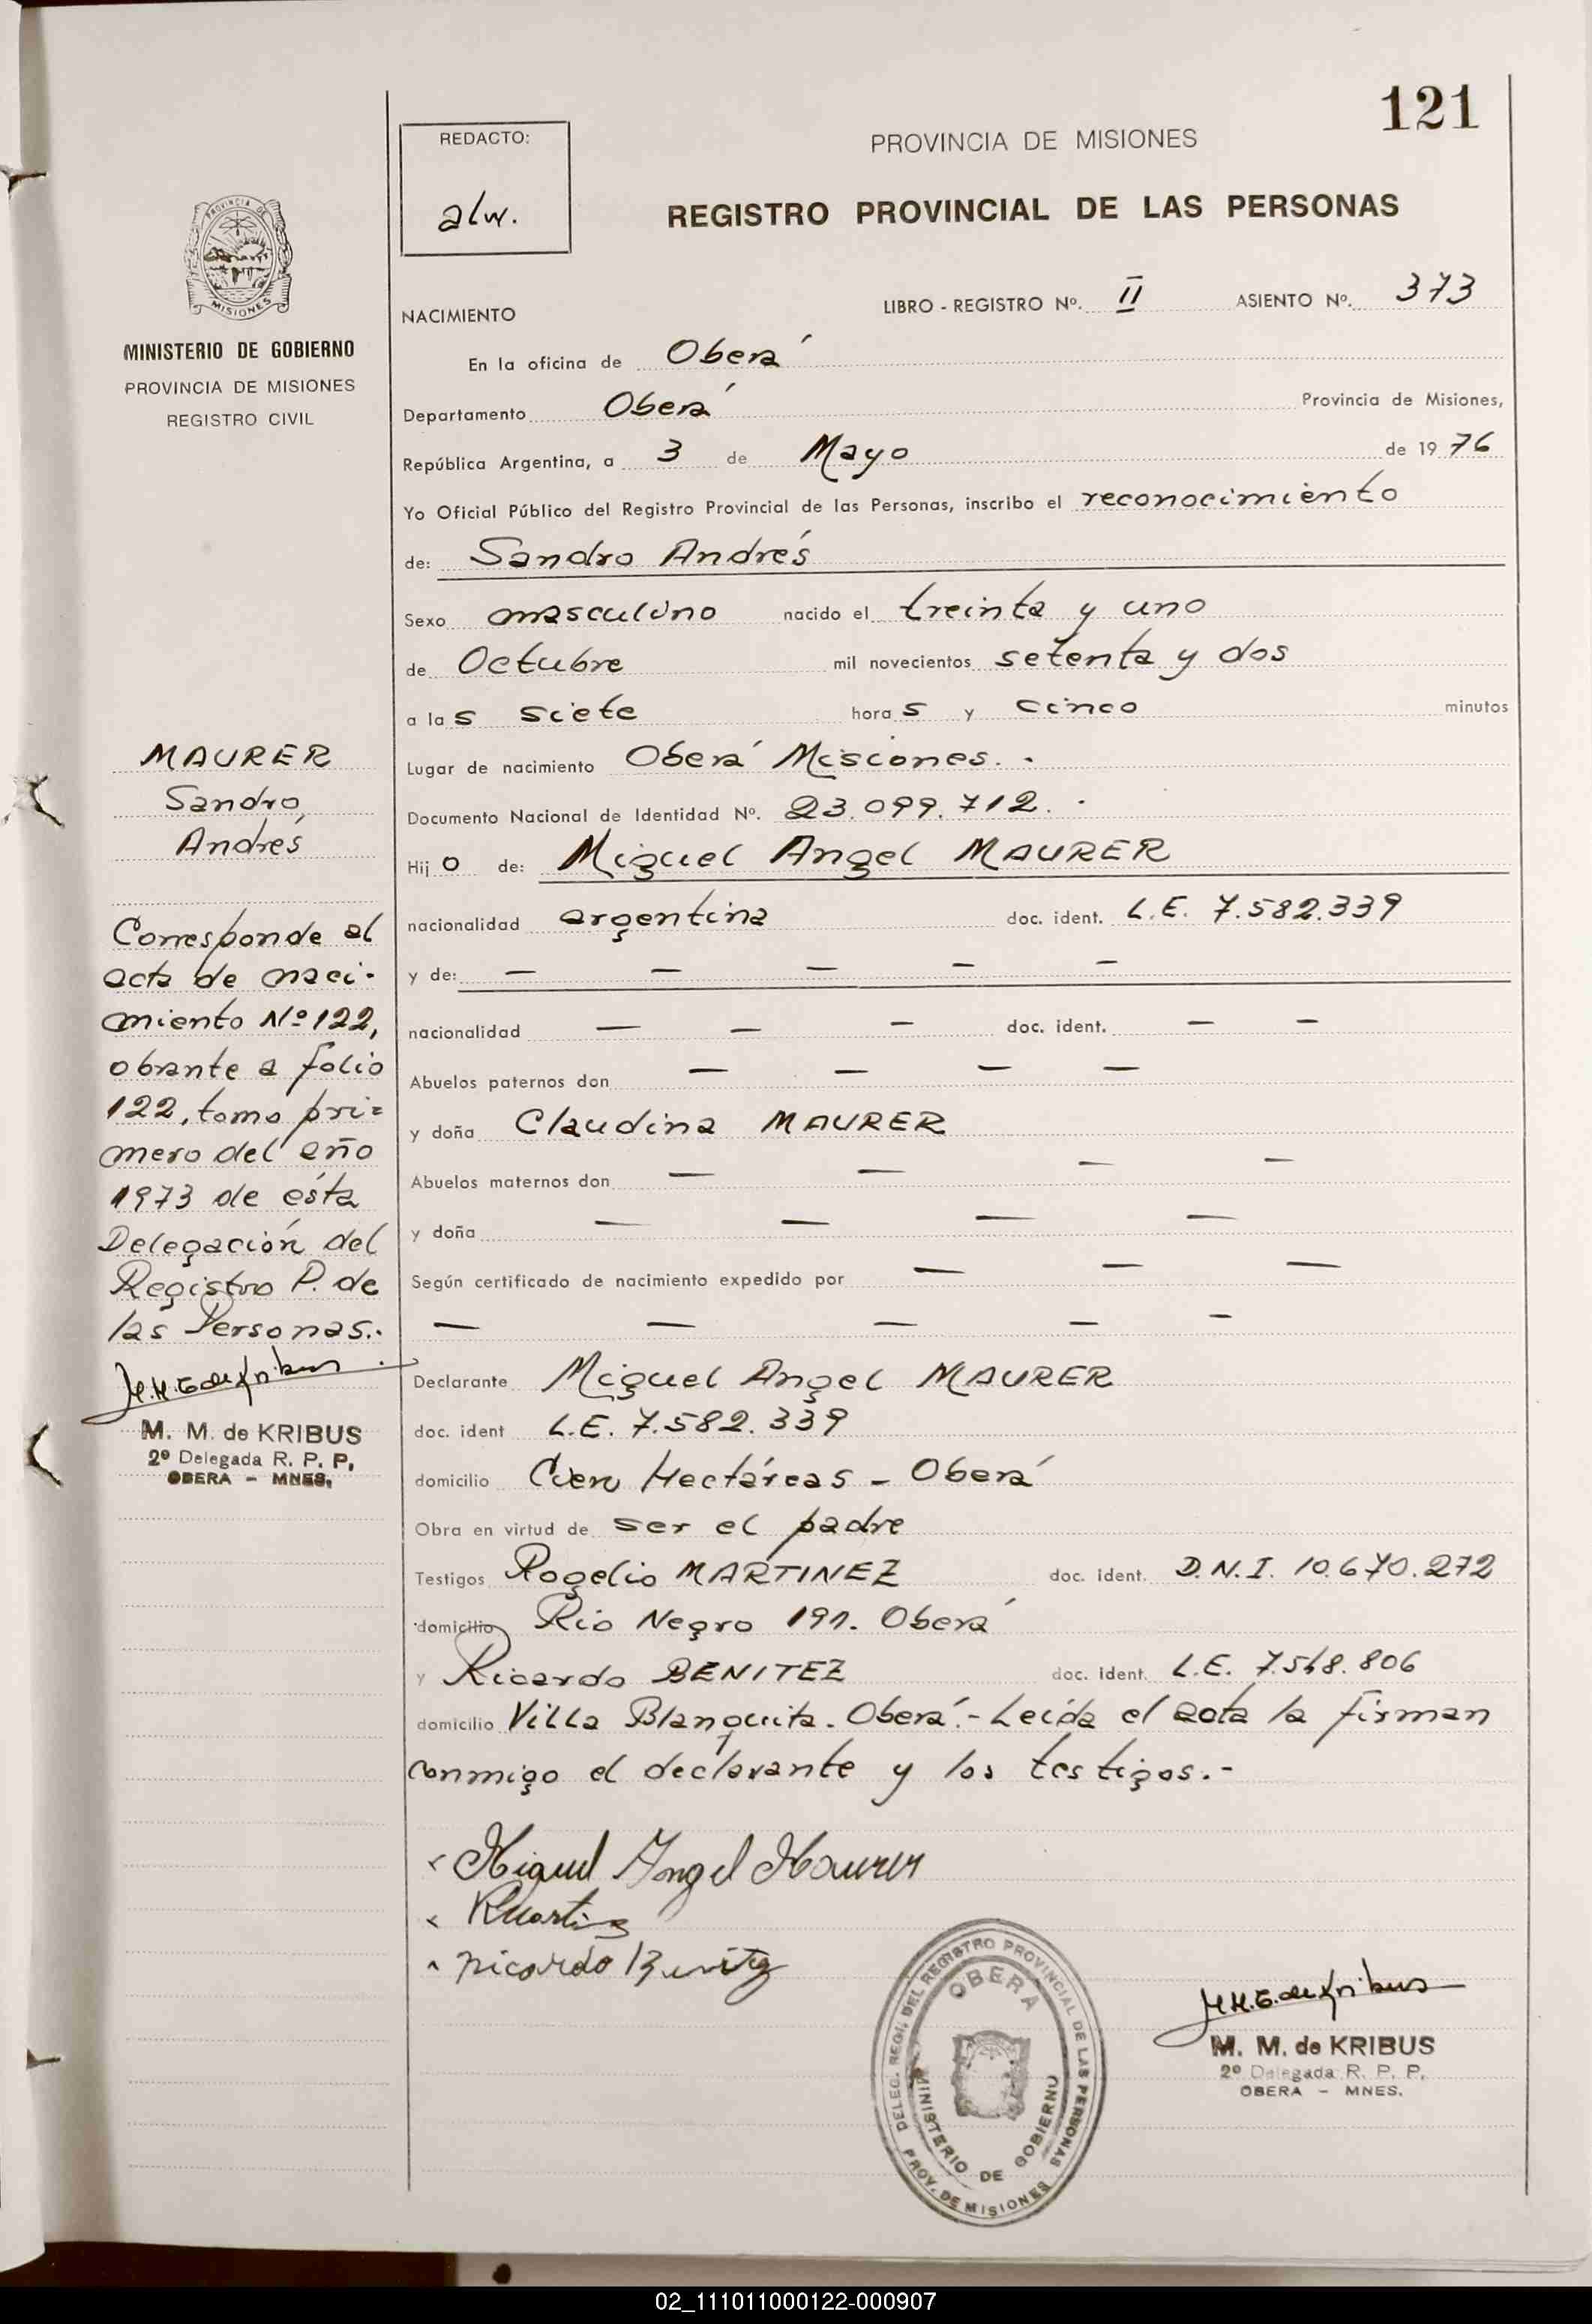 121
REDACTO:
alw.
PROVINCIA DE MISIONES
REGISTRO PROVINCIAL DE LAS PERSONAS
PROVINCIA DE
MISIONES
MINISTERIO DE GOBIERNO
PROVINCIA DE MISIONES
REGISTRO CIVIL
NACIMIENTO LIBRO - REGISTRO Nº. II ASIENTO Nº. 373
En la oficina de Oberá
Departamento Oberá Provincia de Misiones,
República Argentina, a 3 de Mayo de 1976
Yo Oficial Público del Registro Provincial de las Personas, inscribo el reconocimiento
de: Sandro Andrés
Sexo masculino nacido el treinta y uno
de Octubre mil novecientos setenta y dos
a las siete horas y cinco minutos
Lugar de nacimiento Oberá Misiones.
Documento Nacional de Identidad Nº. 23.099.712.
Hijo de: Miguel Angel MAURER
nacionalidad argentina doc. ident. L.E. 7.582.339
y de: — — — — —
nacionalidad — — — doc. ident. — —
Abuelos paternos don — — — —
y doña Claudina MAURER
Abuelos maternos don — — — —
y doña — — — —
Según certificado de nacimiento expedido por — — —
— — — — —
Declarante Miguel Angel MAURER
doc. ident L.E. 7.582.339
domicilio Cien Hectáreas - Oberá
Obra en virtud de ser el padre
Testigos Rogelio MARTINEZ doc. ident. D.N.I. 10.670.272
domicilio Rio Negro 191. Oberá
y Ricardo BENITEZ doc. ident. L.E. 7.548.806
domicilio Villa Blanquita. Oberá.- Leída el acta la firman
conmigo el declarante y los testigos.-
MAURER
Sandro
Andrés
Corresponde al
acta de naci-
miento Nº 122,
obrante a folio
122, tomo pri=
mero del año
1973 de ésta
Delegación del
Registro P. de
las Personas.-
M.M.G de Kribus
M. M. de KRIBUS
2º Delegada R. P. P.
OBERA - MNES.
Miguel Angel Maurer
RMartinez
ricardo Benitez
DELEG. REGI. DEL REGISTRO PROVINCIAL DE LAS PERSONAS
OBERA
MINISTERIO DE GOBIERNO
PROV. DE MISIONES
M.M.G. de Kribus
M. M. de KRIBUS
2º Delegada R. P. P.
OBERA - MNES.
02_111011000122-000907